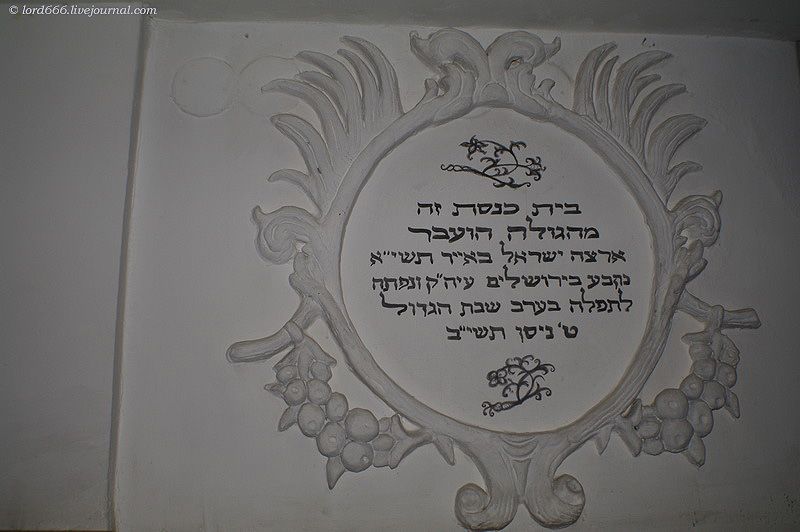 © lord666.livejournal.com
בית כנסת זה
מהגולה הועבר
ארצה ישראל באייר תשי״א
נקבע בירושלים עיה״ק ונפתח
לתפלה בערב שבת הגדול
ט׳ ניסן תשי״ב